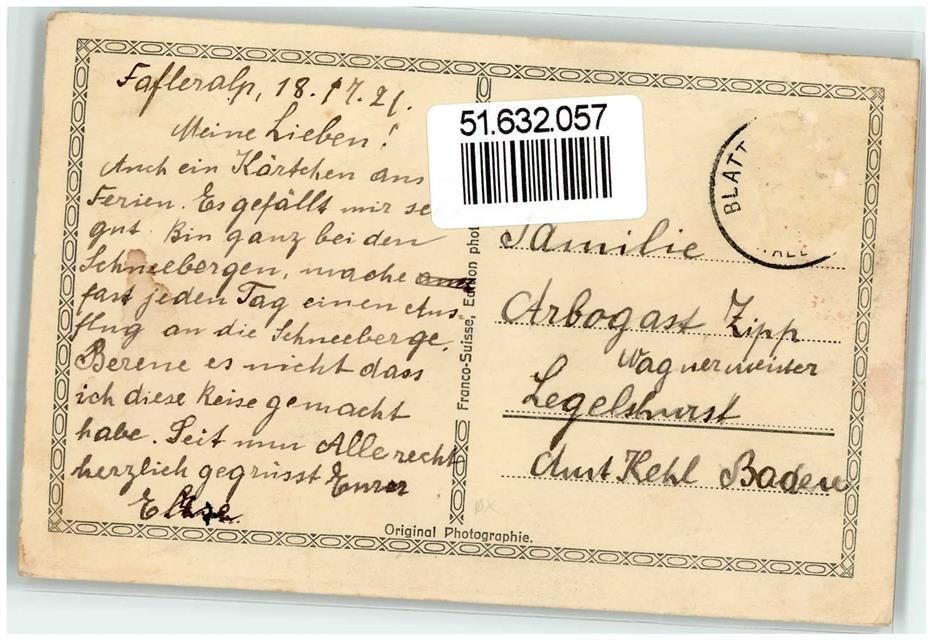 Fafleralp, 18. 17. 21.
Meine Lieben!
Auch ein Kärtchen aus
Ferien. Es gefällt mir se
gut. Bin ganz bei den
Schneebergen, mache
fast jeden Tag einen Aus
flug an die Schneeberge.
Berene es nicht dass
ich diese Reise gemacht
habe. Seit nun Alle recht
herzlich gegrüsst Eurer
Else.
51.632.057
Franco-Suisse, Edition phot
BLATT
ALL
Familie
Arbogast Zipp
Wagnermeister
Legelshurst
Amt Kehl Baden
Original Photographie.